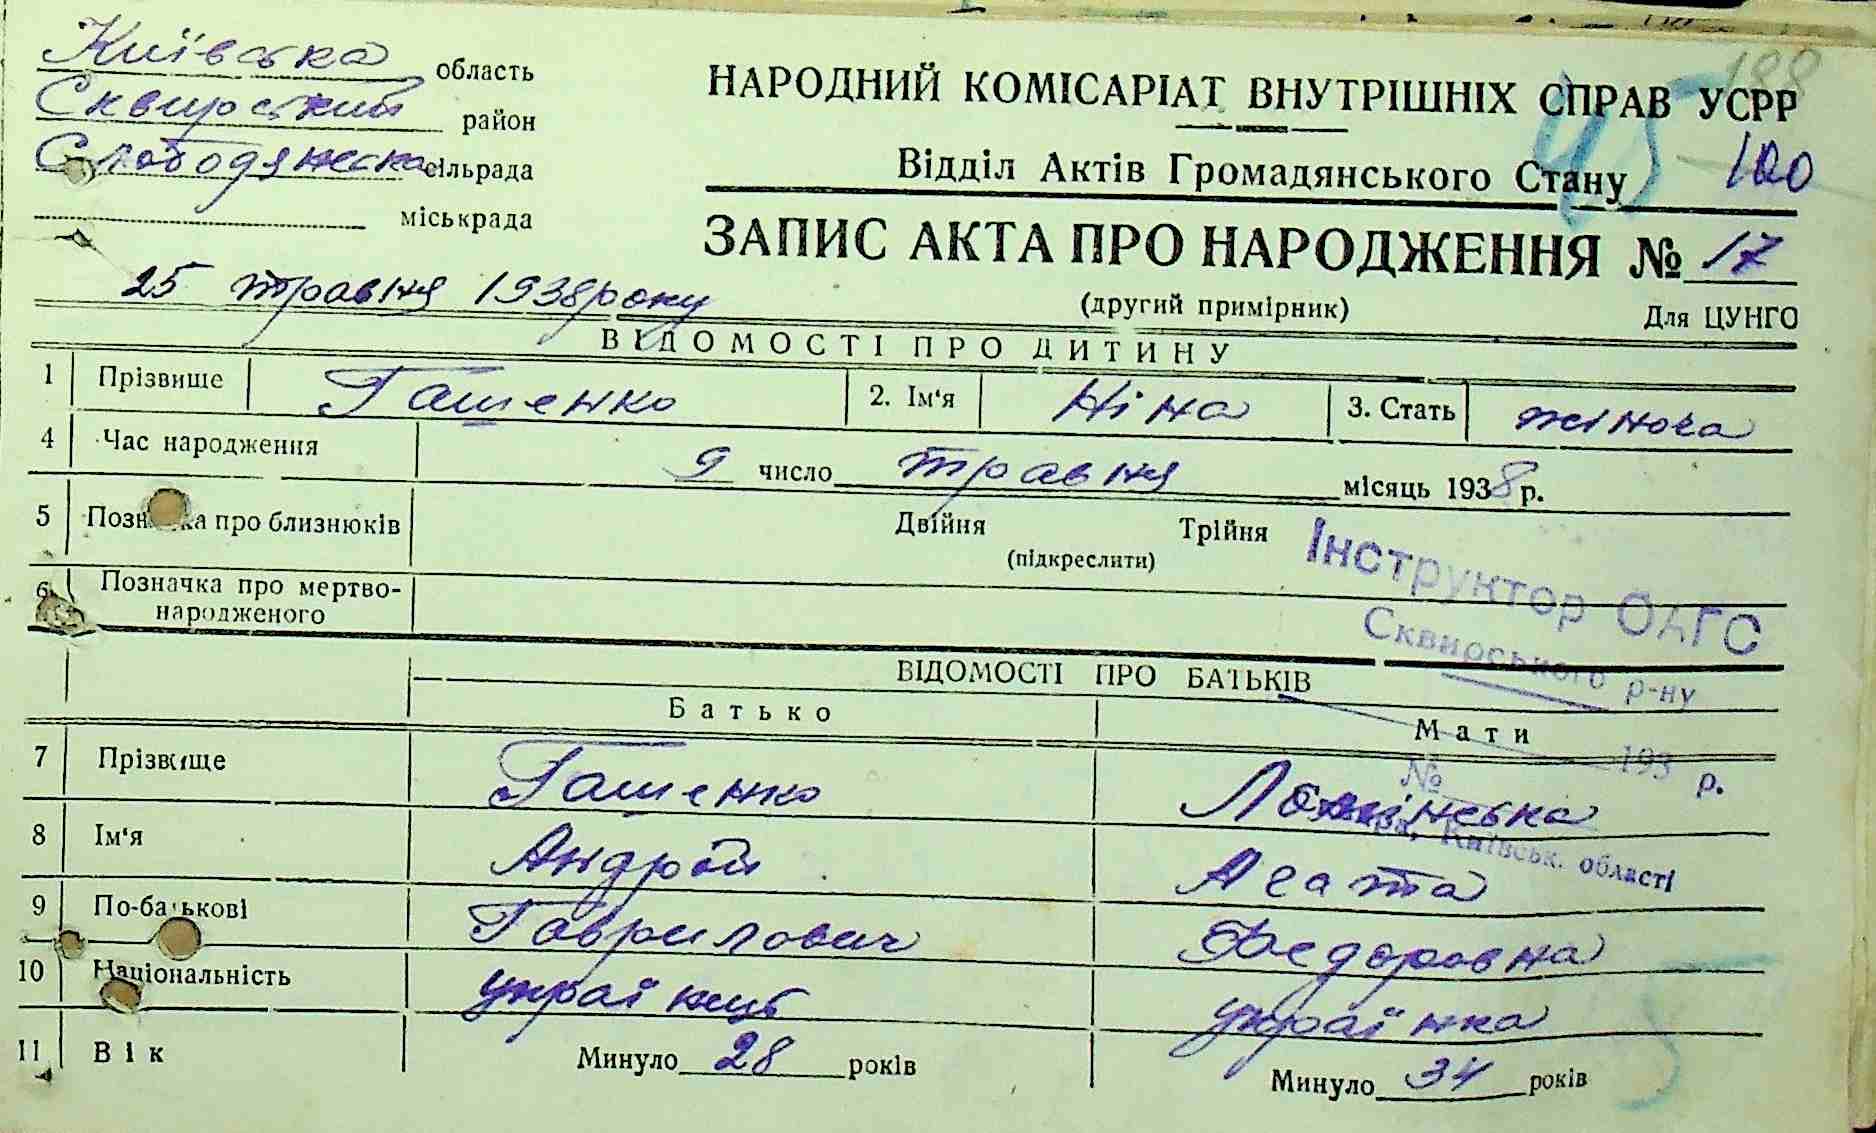 Київська область
Сквирський район
Слободянська сільрада
міськрада
188
НАРОДНИЙ КОМІСАРІАТ ВНУТРІШНІХ СПРАВ УСРР
Відділ Актів Громадянського Стану
100
ЗАПИС АКТА ПРО НАРОДЖЕННЯ № 17
25 травня 1938 року
(другий примірник) Для ЦУНГО
ВІДОМОСТІ ПРО ДИТИНУ
1 Прізвище Гашенко 2. Ім'я Ніна 3. Стать жіноча
4 Час народження 9 число травня місяць 1938 р.
5 Позначка про близнюків Двійня Трійня
(підкреслити)
Інструктор ОАГС
Сквирського р-ну
6 Позначка про мертво-
народженого
ВІДОМОСТІ ПРО БАТЬКІВ
Батько Мати
193 р.
№
7 Прізвище Гашенко
8 Ім'я Андрій Агата
Київськ. області
9 По-батькові Гаврилович Федоровна
10 Національність українець українка
11 Вік Минуло 28 років Минуло 34 років